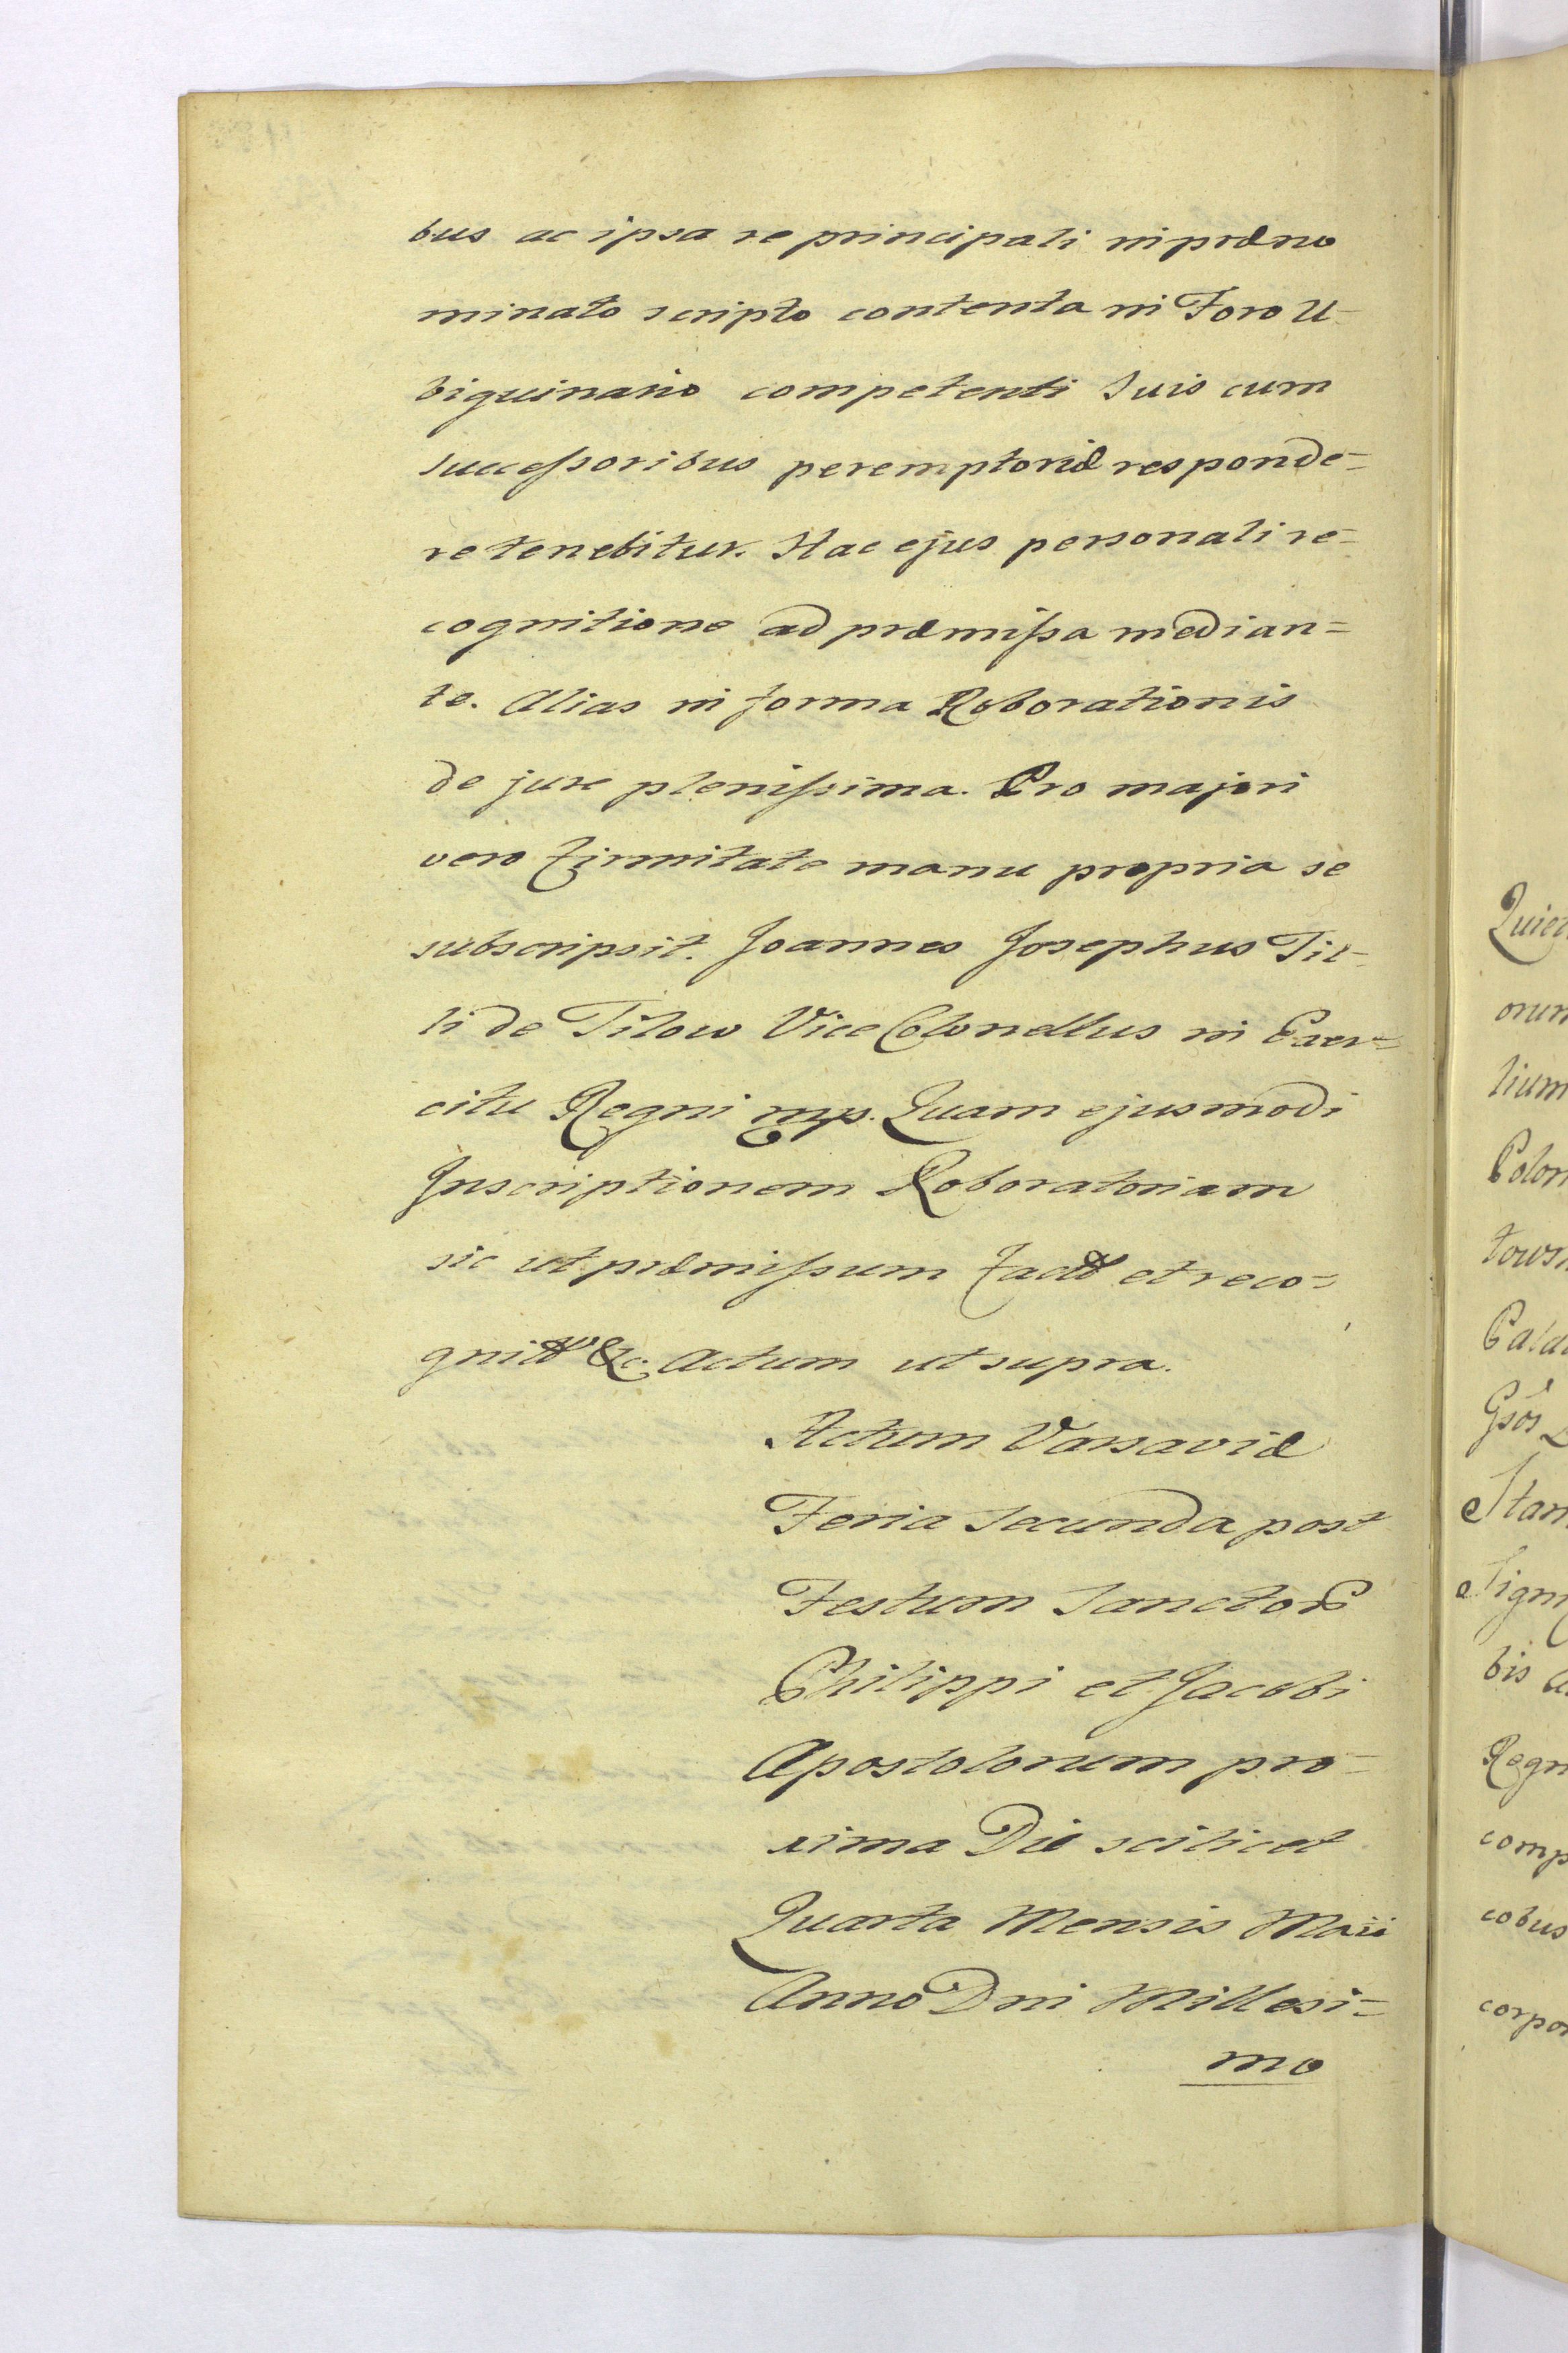 bus ac ipsa re principali in præno
minato scripto contenta in Foro U-
biquinario competenti suis cum
successoribus peremptoriæ responde=
re tenebitur. Hac ejus personali re=
cognitione ad præmissa median=
te. Alias in forma Roborationis
de jure plenissima. Pro majori
vero firmitate manu propria se
subscripsit. Joannes Josephus Til-
li de Tilow Vice Colonellus in Exer=
citu Regni mp. Quam ejusmodi
Inscriptionem Roboratoriam
sic ut præmissum fact et reco=
gnit &c. Actum ut supra.
Actum Varsaviæ
Feria secunda post
Festum Sanctor
Philippi et Jacobi
Apostolorum pro=
xima Die scilicet
Quarta Mensis Maii
Anno Dni Millesi=
mo
Quiet
orum
lium
Colon
tows
Pala
Gsos
Stan
Sign
bis a
Regn
comp
cobus
corpor